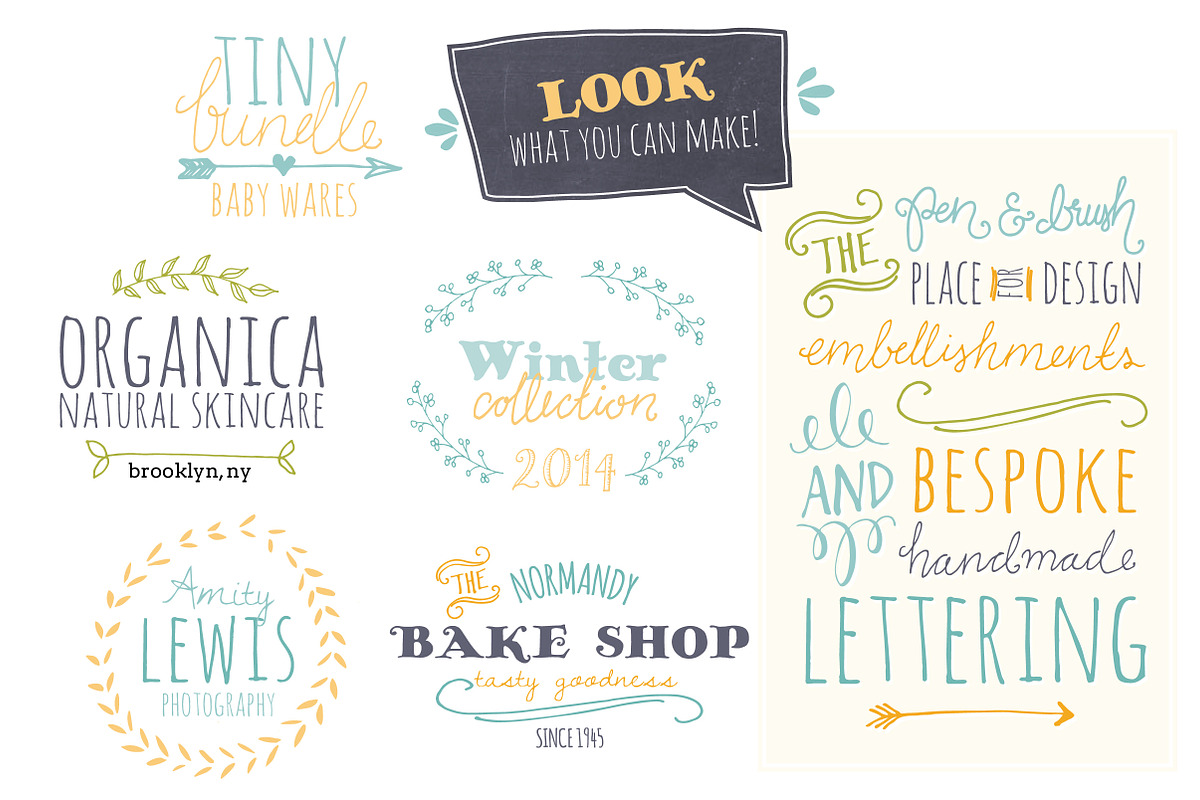 TINY
bundle
BABY WARES
LOOK
WHAT YOU CAN MAKE!
ORGANICA
NATURAL SKINCARE
brooklyn, ny
Winter
collection
2014
Amity
LEWIS
PHOTOGRAPHY
THE NORMANDY
BAKE SHOP
tasty goodness
SINCE 1945
THE pen & brush
PLACE FOR DESIGN
embellishments
AND BESPOKE
handmade
LETTERING